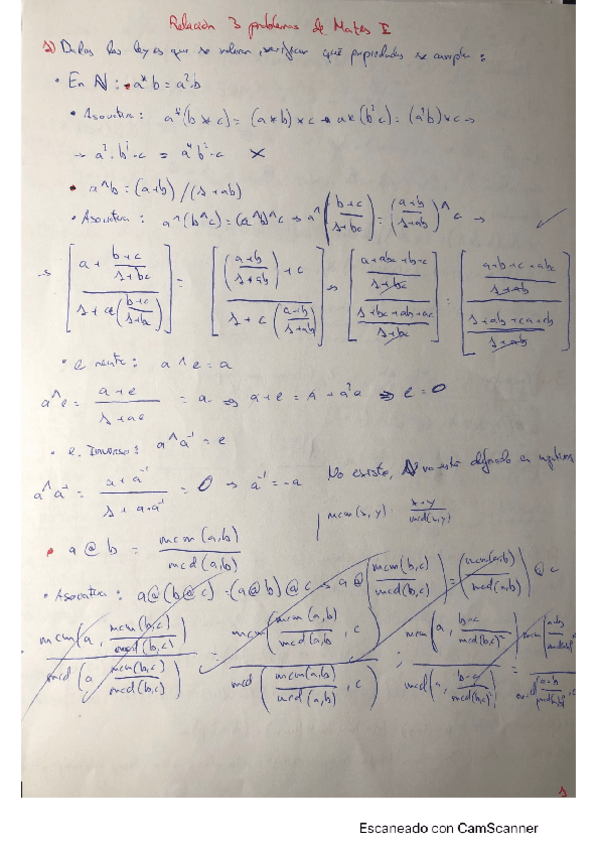 Relación 3 problemas de Mates I
1) Dadas las leyes que se indican, verificar qué propiedades se cumplen:
• En ℕ: • a*b = a²·b
• Asociativa: a*(b*c) = (a*b)*c → a*(b²c) = (a²b)*c →
→ a²·b²·c = a⁴b²·c ✗
• a^b = (a+b)/(1+ab)
• Asociativa: a^(b^c) = (a^b)^c → a^((b+c)/(1+bc)) = ((a+b)/(1+ab))^c →
→ [(a + (b+c)/(1+bc))/(1 + a((b+c)/(1+bc)))] = [(((a+b)/(1+ab)) + c)/(1 + c((a+b)/(1+ab)))] → [((a+abc+b+c)/(1+bc))/((1+bc+ab+ac)/(1+bc))] = [((a+b+c+abc)/(1+ab))/((1+ab+ca+cb)/(1+ab))]
• e. neutro: a^e = a
a^e = (a+e)/(1+ae) = a → a+e = a+a²e ⇒ e = 0
• e. Inverso: a^a⁻¹ = e
a^a⁻¹ = (a+a⁻¹)/(1+a·a⁻¹) = 0 → a⁻¹ = -a No existe, ℕ no está definido en negativos
mcm(x,y) = (x·y)/mcd(x,y)
• a @ b = mcm(a,b)/mcd(a,b)
• Asociativa: a@(b@c) = (a@b)@c → a@(mcm(b,c)/mcd(b,c)) = (mcm(a,b)/mcd(a,b)) @ c
mcm(a, mcm(b,c)/mcd(b,c))/mcd(a, mcm(b,c)/mcd(b,c)) = mcm(mcm(a,b)/mcd(a,b), c)/mcd(mcm(a,b)/mcd(a,b), c) ; mcm(a, b·c/mcd(b,c)²)/mcd(a, b·c/mcd(b,c)²) =
1
Escaneado con CamScanner